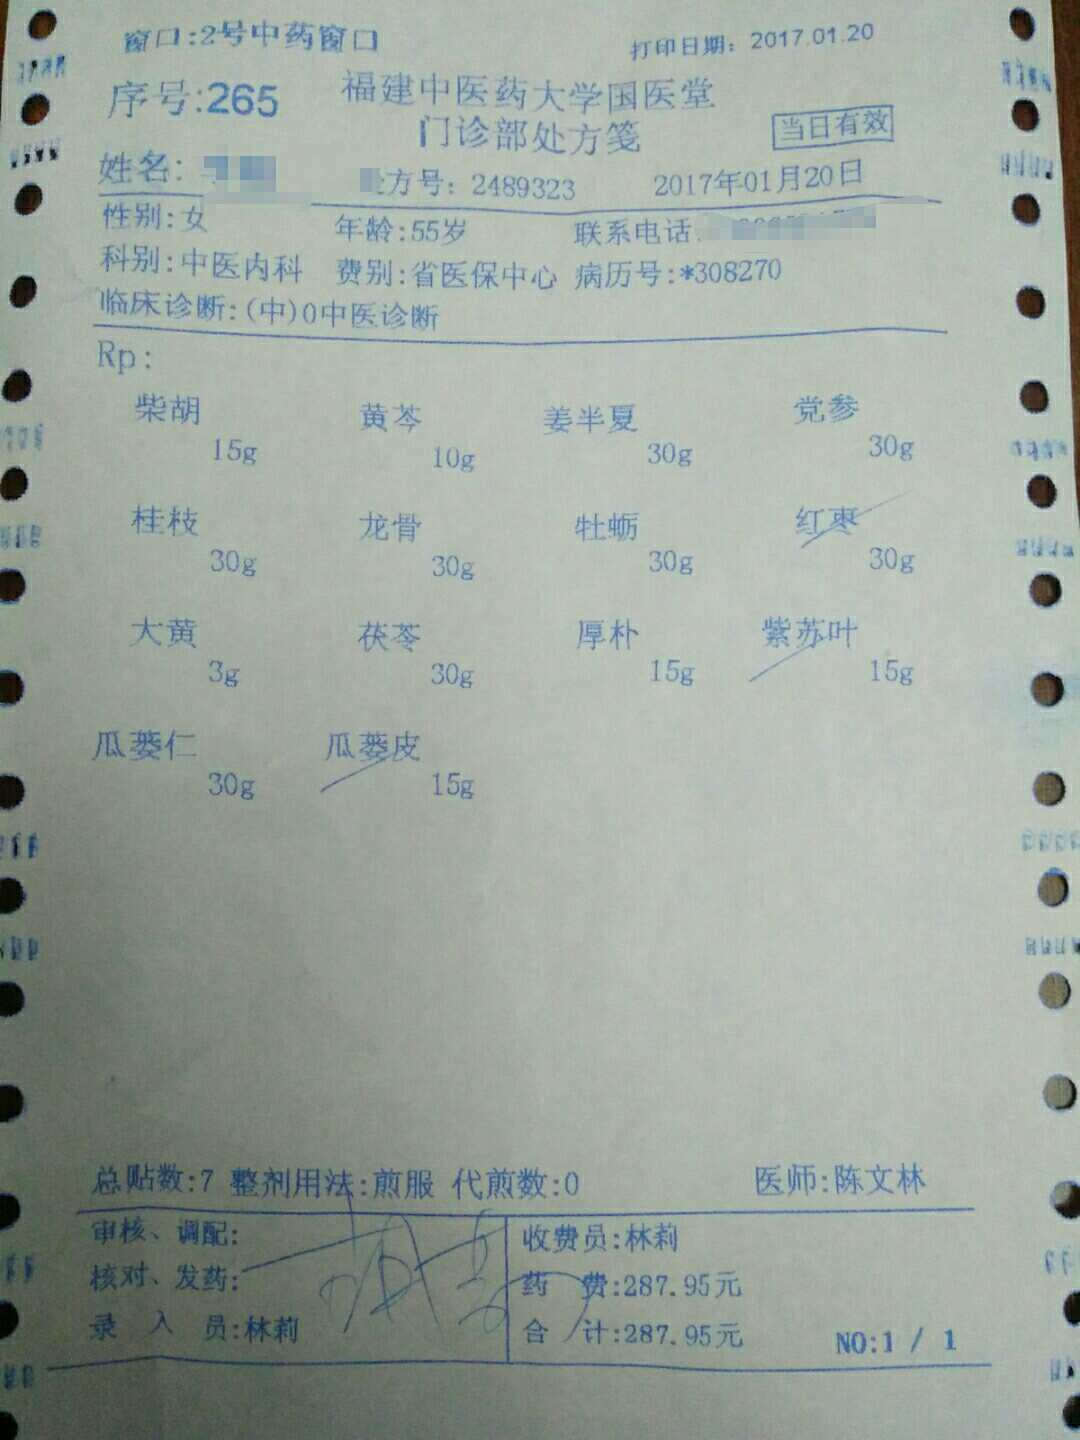 窗口:2号中药窗口 打印日期: 2017.01.20
序号:265 福建中医药大学国医堂
门诊部处方笺 当日有效
姓名: 方号: 2489323 2017年01月20日
性别:女 年龄:55岁 联系电话:
科别:中医内科 费别:省医保中心 病历号:*308270
临床诊断:(中)0中医诊断
Rp:
柴胡 黄芩 姜半夏 党参
15g 10g 30g 30g
桂枝 龙骨 牡蛎 红枣
30g 30g 30g 30g
大黄 茯苓 厚朴 紫苏叶
3g 30g 15g 15g
瓜蒌仁 瓜蒌皮
30g 15g
总贴数:7 整剂用法:煎服 代煎数:0 医师:陈文林
审核、调配: 收费员:林莉
核对、发药: 药 费:287.95元
录 入 员:林莉 合 计:287.95元 NO:1 / 1